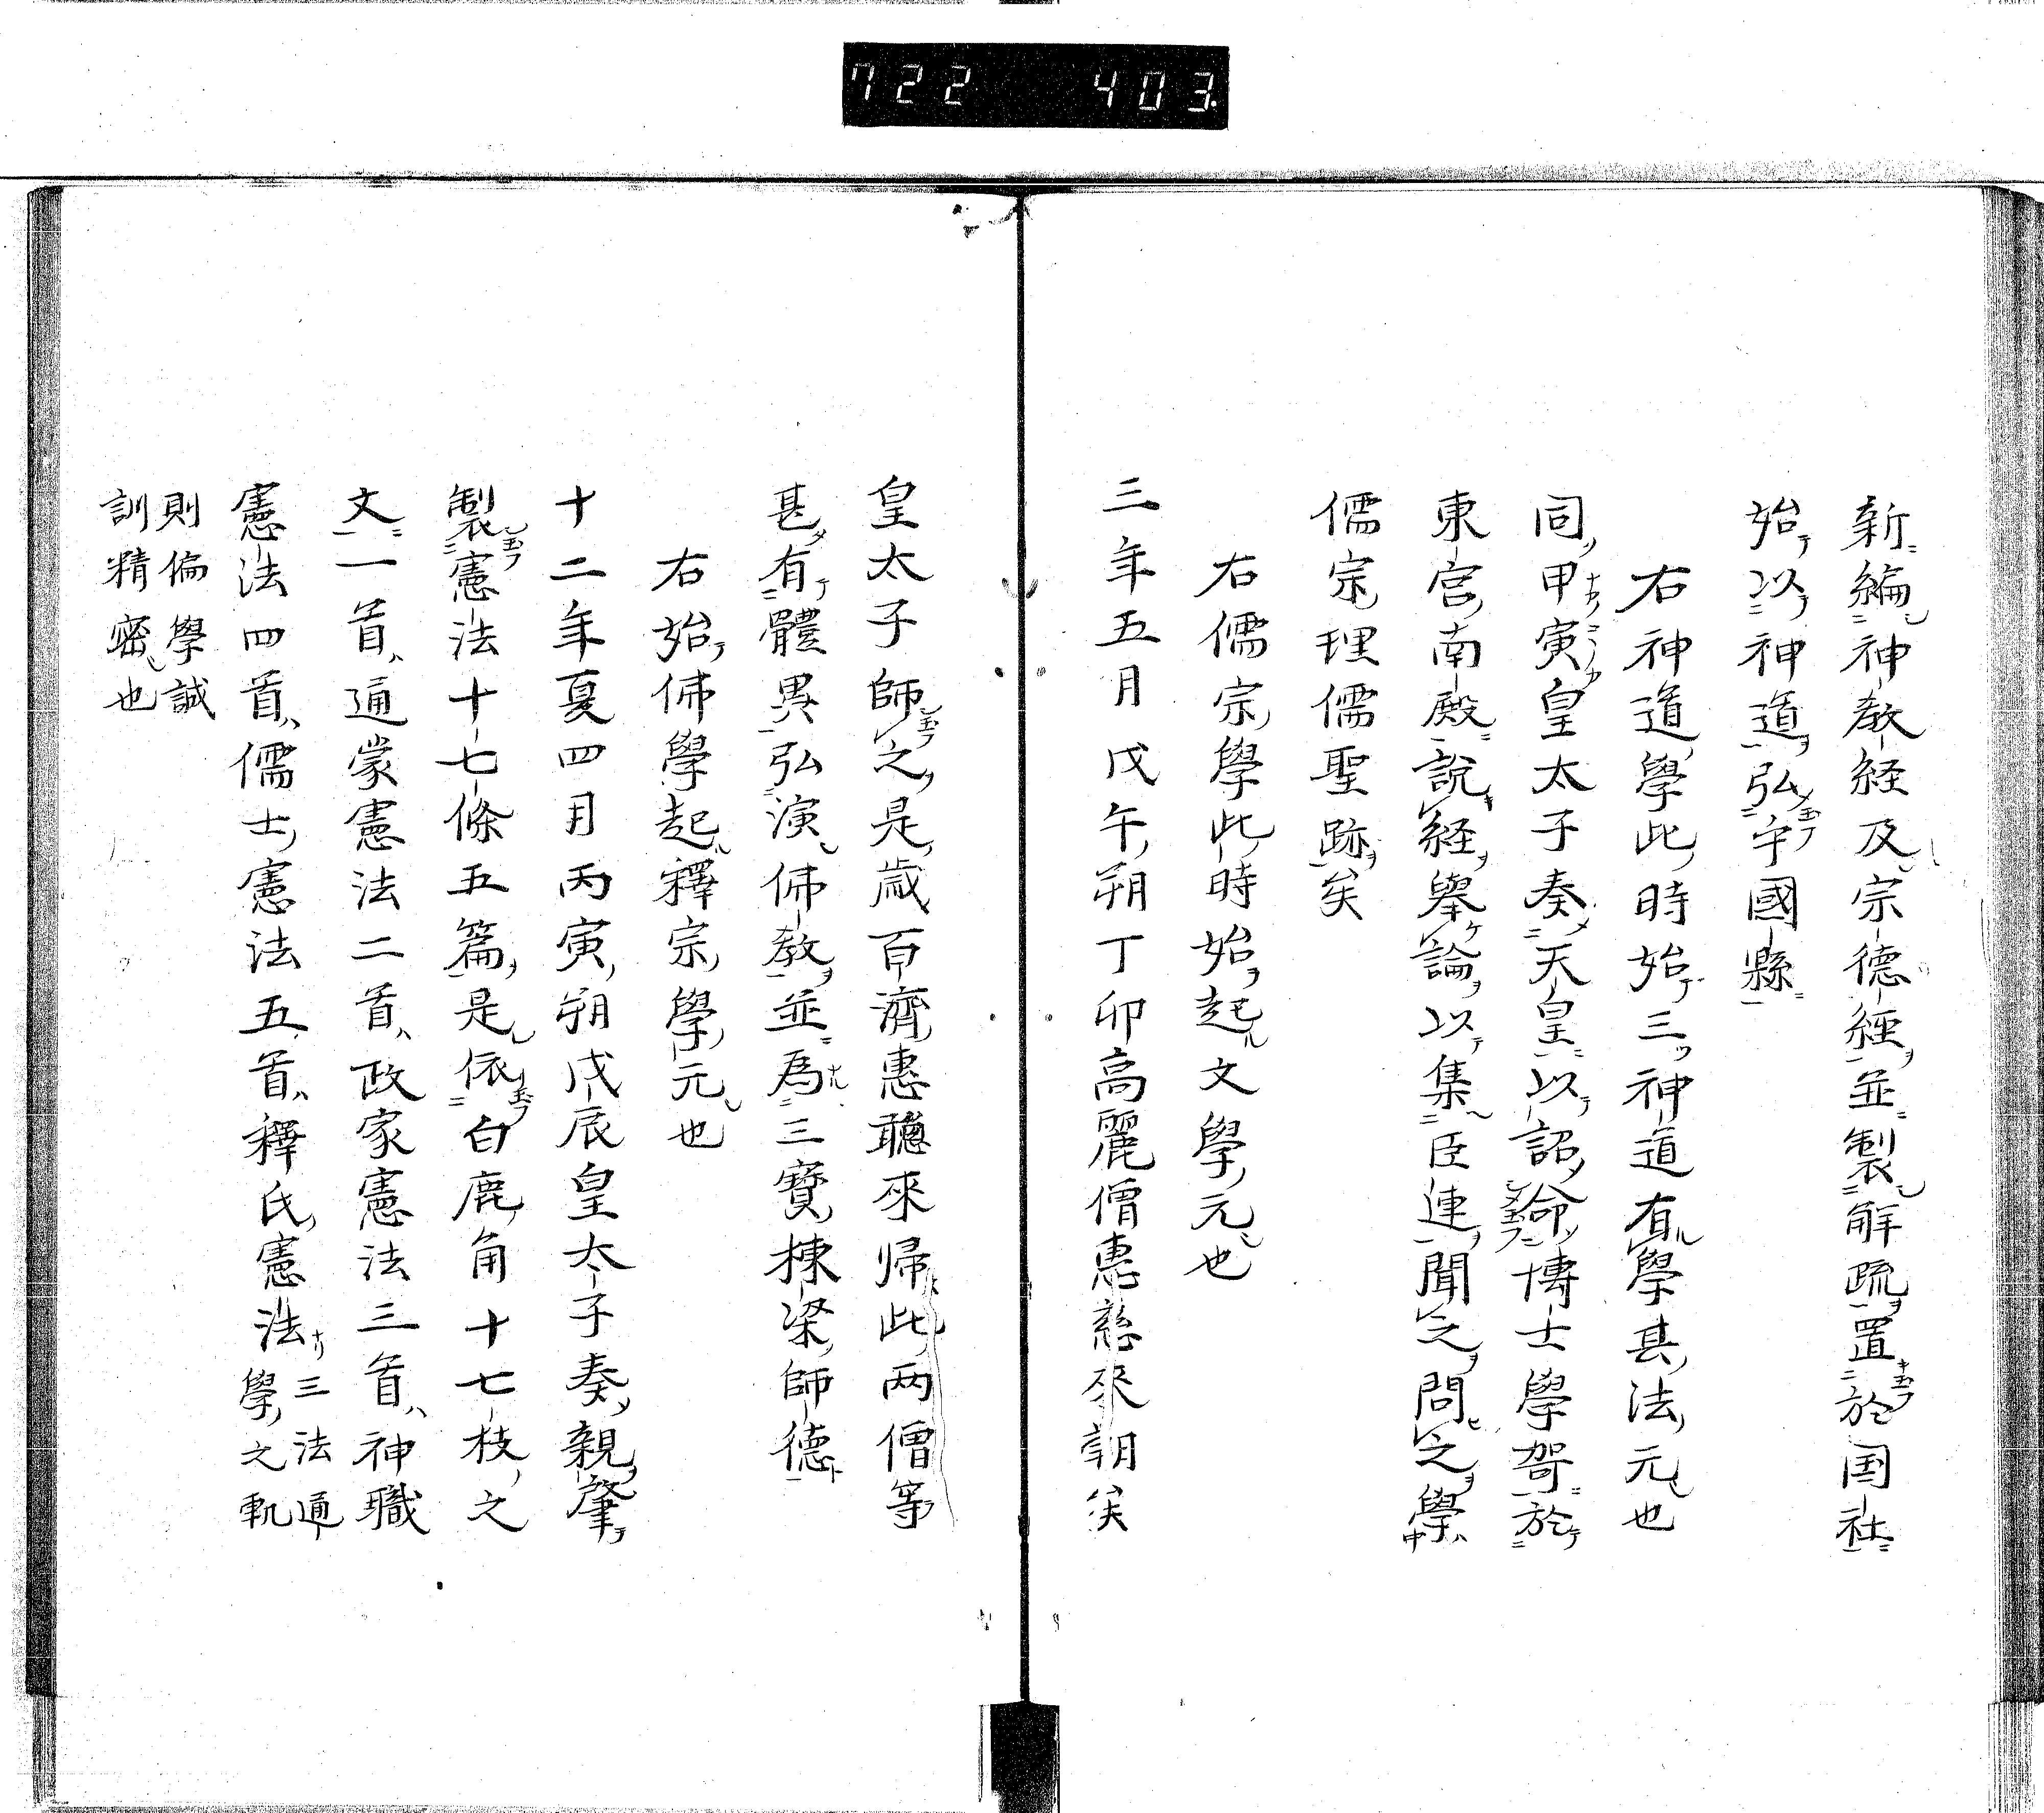 722 403
新編神教経及宗德經並製解疏置於国社
始以神道弘宇國縣
右神道學此時始三神道有學其法元也
同甲寅皇太子奏天皇以詔命博士學哿於
東宮南殿説経舉論以集臣連聞之問之學
儒宗理儒聖跡矣
右儒宗學此時始起文學元也
三年五月戊午朔丁卯高麗僧惠慈來朝矣
皇太子師之是歳百濟惠聰來帰此両僧等
甚有體異弘演佛教並為三寶棟梁師德
右始佛學起釋宗學元也
十二年夏四月丙寅朔戊辰皇太子奏親肇
製憲法十七條五篇是依白鹿角十七枝之
文一首通蒙憲法二首政家憲法三首神職
憲法四首儒士憲法五首釋氏憲法三法通
學之軌
則偏學誠
訓精密也